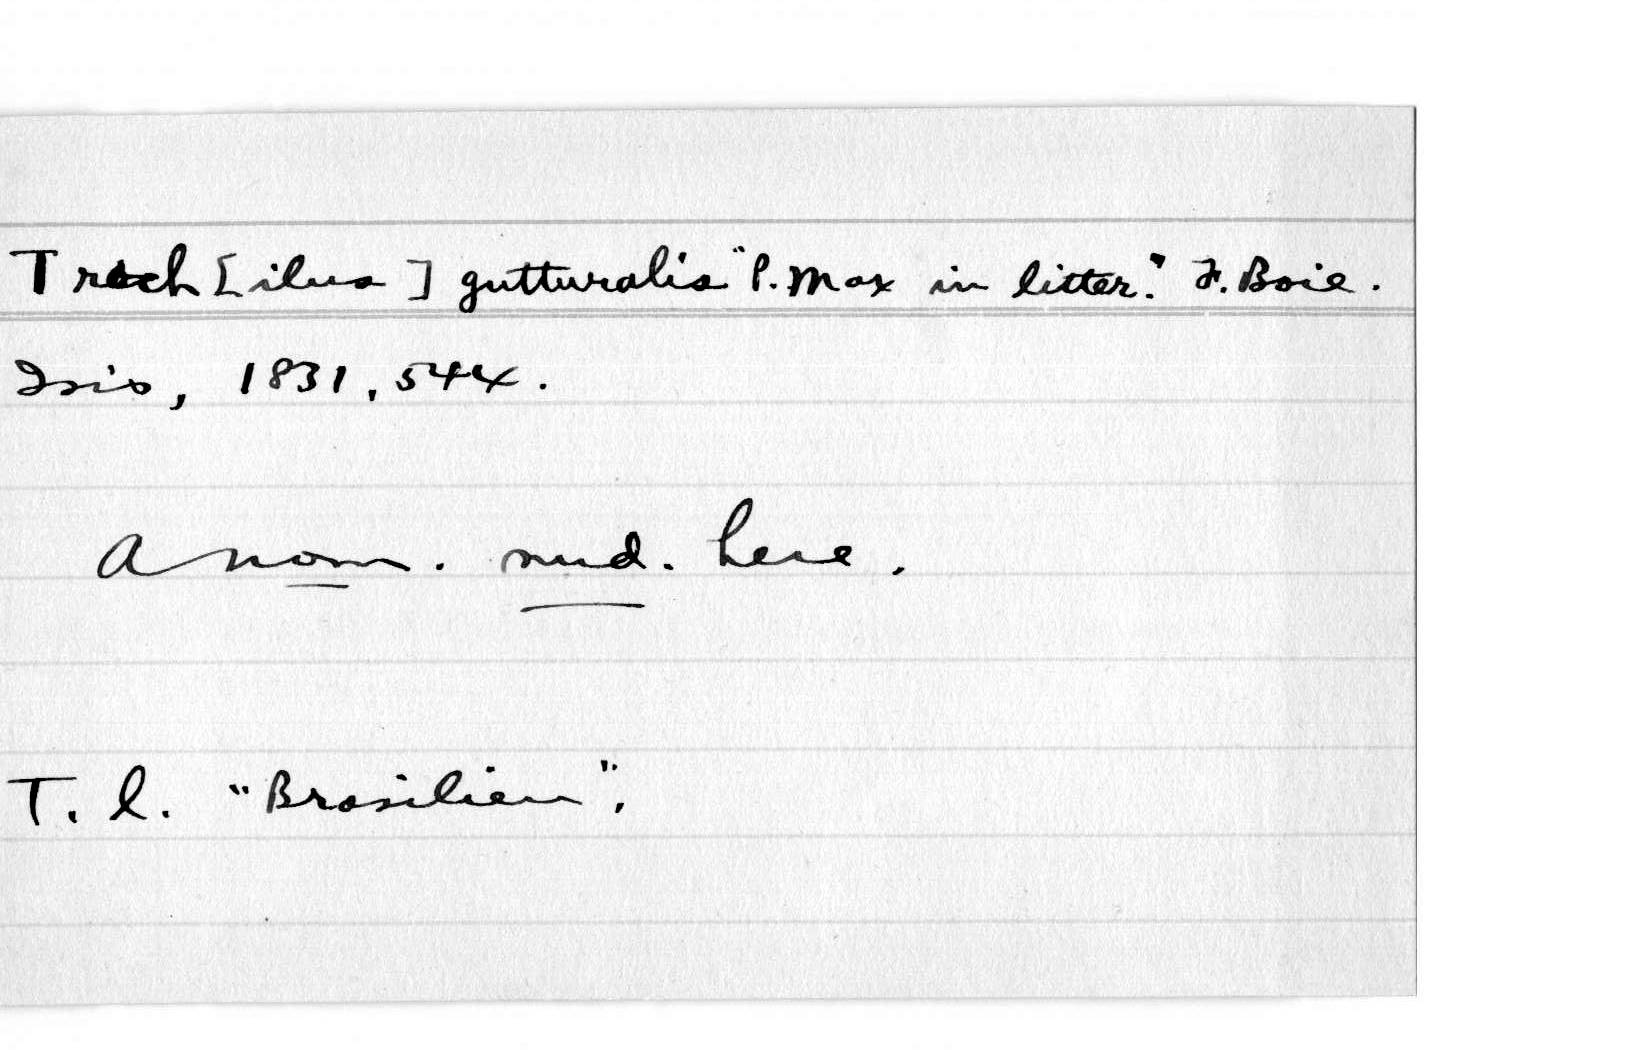 Troch[ilus] gutturalis "P. Max in litter." F. Boie.
Isis, 1831, 544.
A nom. nud. here.
T. l. "Brasilien".